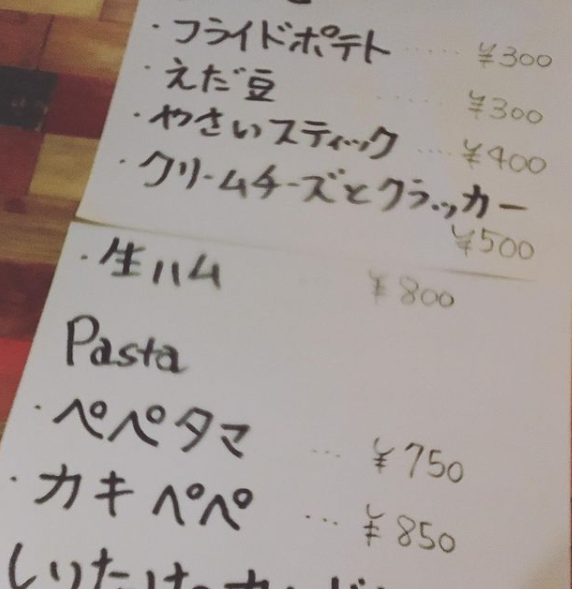 ・フライドポテト ..... ¥300
・えだ豆 ..... ¥300
・やさいスティック ... ¥400
・クリームチーズとクラッカー
¥500
・生ハム ¥800
Pasta
・ペペタマ ... ¥750
・カキペペ ... ¥850